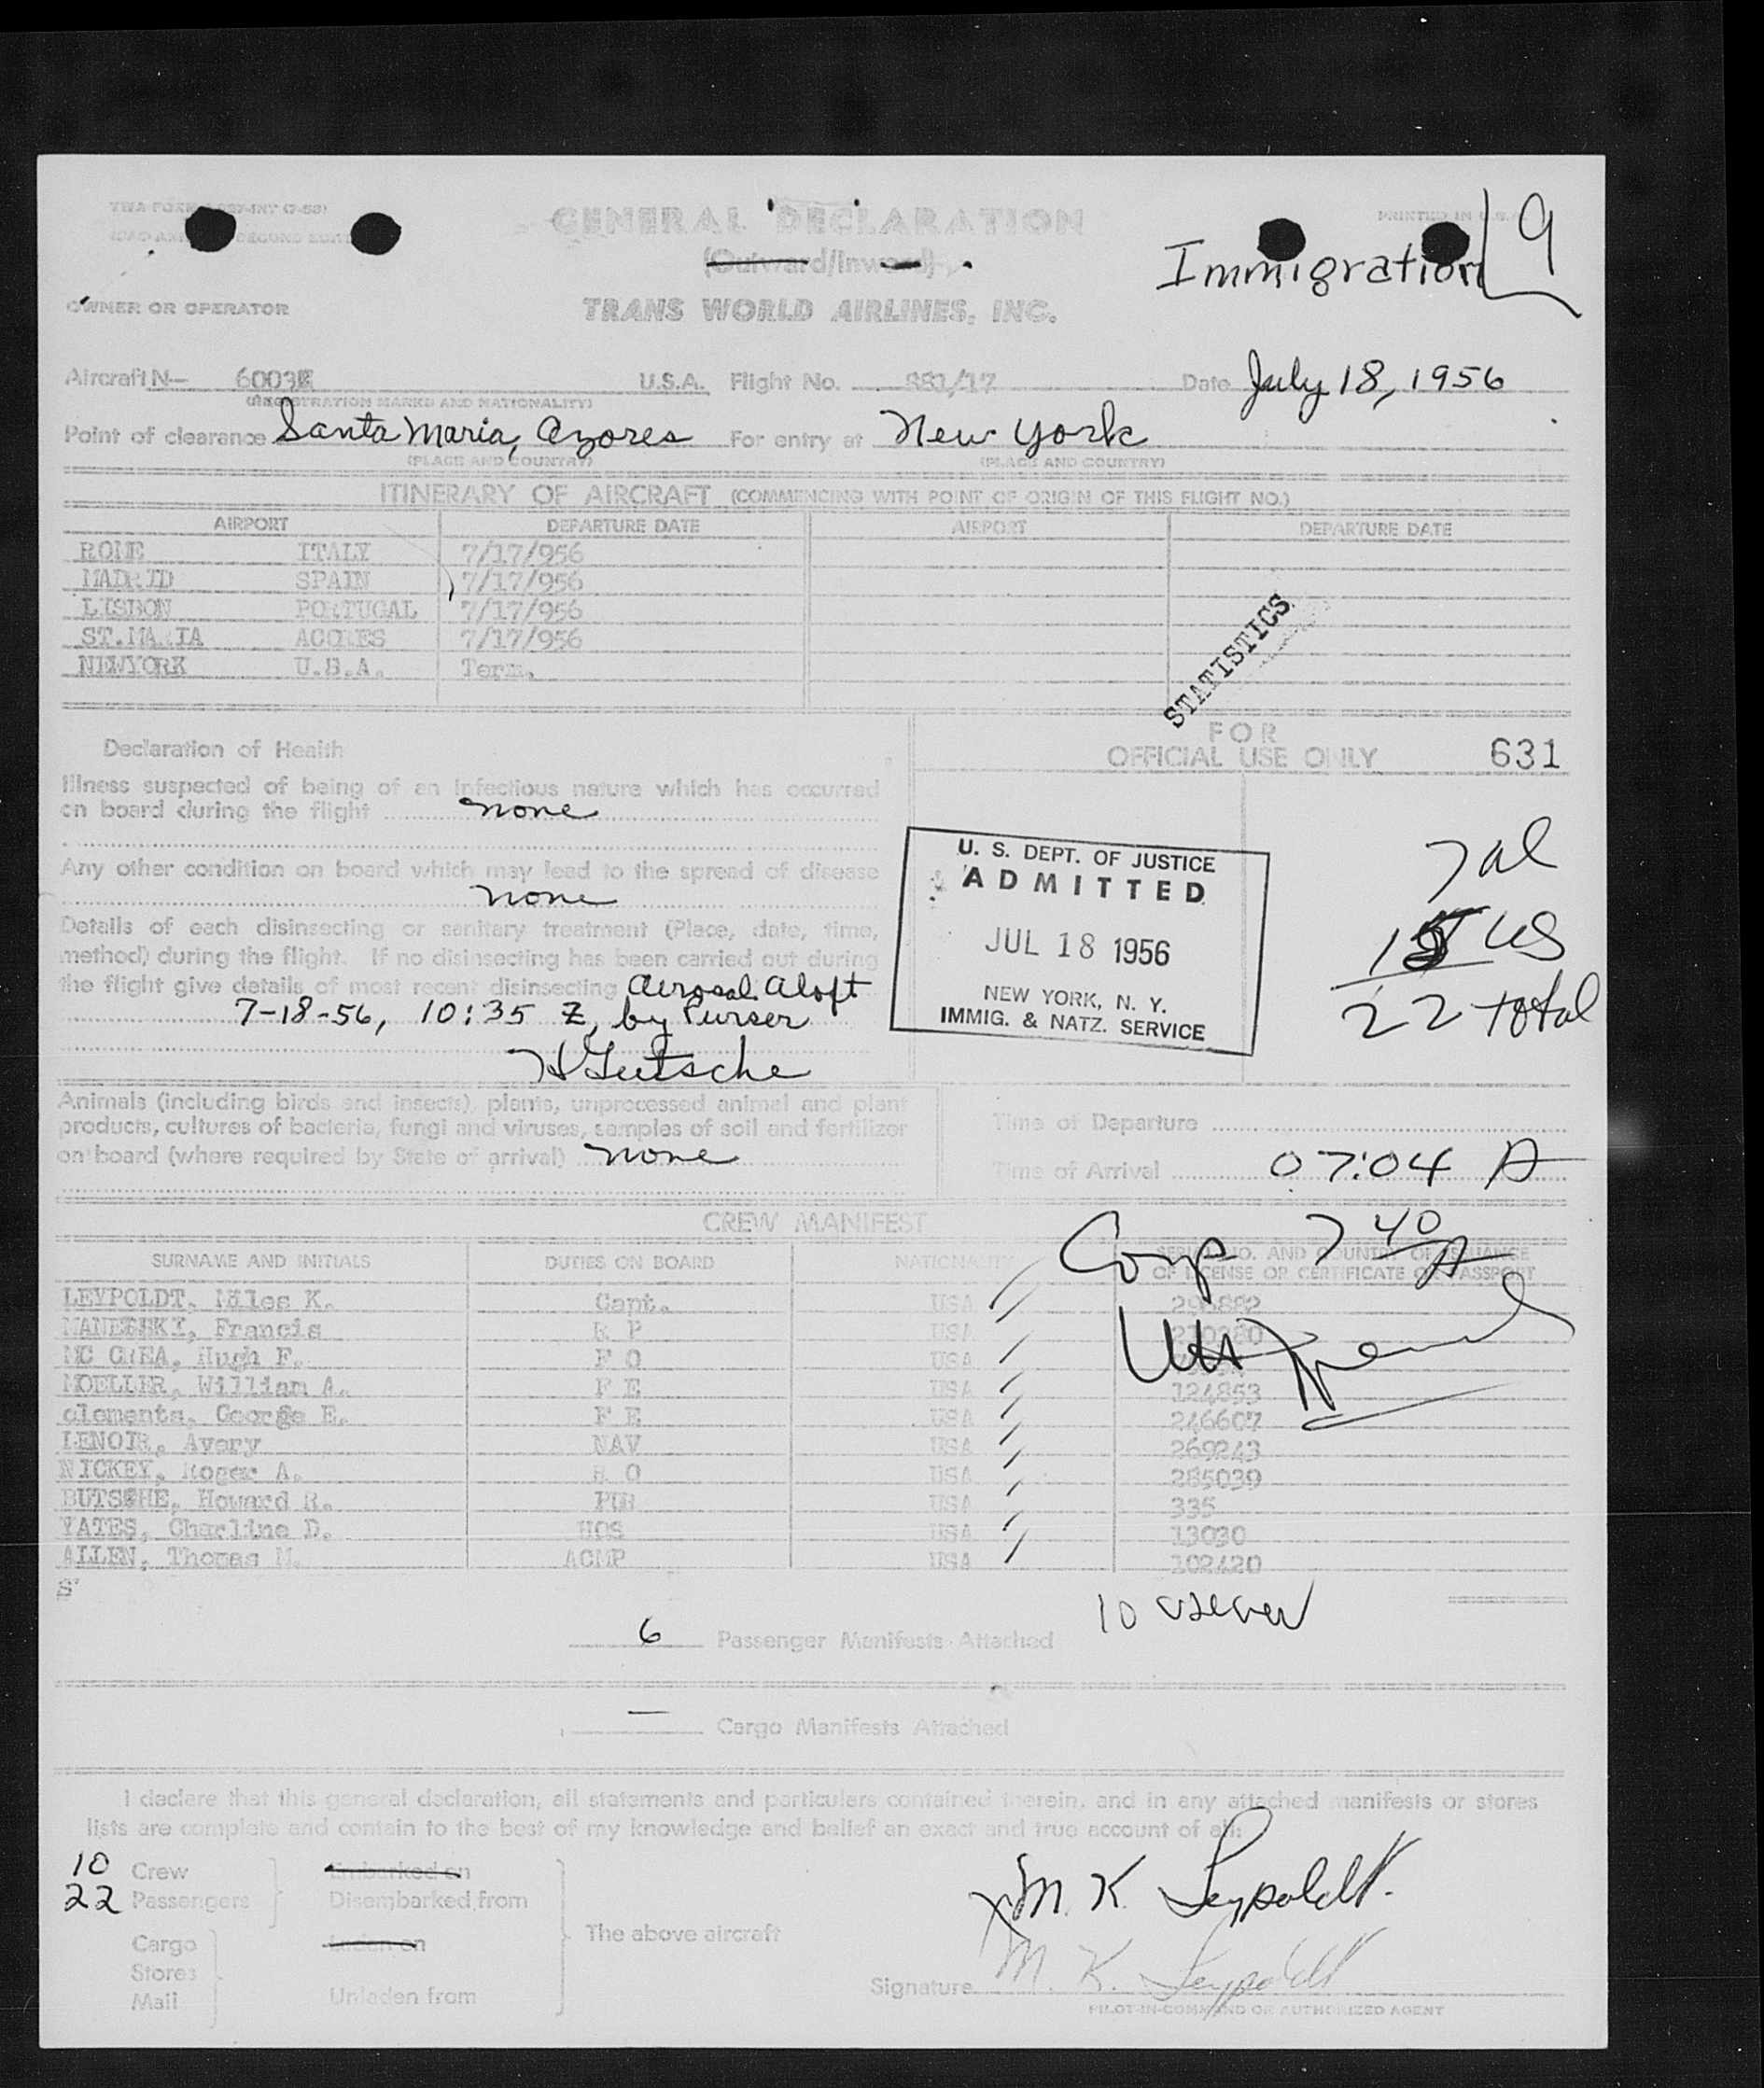 GENERAL DECLARATION
(Outward/Inward)
PRINTED IN U.S.A.
Immigration
9
OWNER OR OPERATOR
TRANS WORLD AIRLINES, INC.
Aircraft N- U.S.A. Flight No. Date July 18, 1956
(REGISTRATION MARKS AND NATIONALITY)
Point of clearance Santa Maria, Azores For entry at New York
(PLACE AND COUNTRY) (PLACE AND COUNTRY)
ITINERARY OF AIRCRAFT (COMMENCING WITH POINT OF ORIGIN OF THIS FLIGHT NO.)
AIRPORT DEPARTURE DATE AIRPORT DEPARTURE DATE
ROME ITALY 7/17/956
MADRID SPAIN 7/17/956
LISBON PORTUGAL 7/17/956
ST.MARIA ACORES 7/17/956
NEWYORK U.S.A. Term.
STATISTICS
FOR
OFFICIAL USE ONLY 631
Declaration of Health
Illness suspected of being of an infectious nature which has occurred
on board during the flight none
Any other condition on board which may lead to the spread of disease
none
Details of each disinsecting or sanitary treatment (Place, date, time,
method) during the flight. If no disinsecting has been carried out during
the flight give details of most recent disinsecting Aerosol Aloft
7-18-56, 10:35 Z, by Purser
U. S. DEPT. OF JUSTICE
ADMITTED
JUL 18 1956
NEW YORK, N. Y.
IMMIG. & NATZ. SERVICE
7 al
15 US
22 total
Animals (including birds and insects), plants, unprocessed animal and plant
products, cultures of bacteria, fungi and viruses, samples of soil and fertilizer
on board (where required by State of arrival) none
Time of Departure
Time of Arrival 07:04 A
CREW MANIFEST
Comp 7 40 A
SURNAME AND INITIALS DUTIES ON BOARD NATIONALITY SERIAL NO. AND COUNTRY OF ISSUANCE
OF LICENSE OR CERTIFICATE OR PASSPORT
LEYPOLDT, Miles K. Capt. USA
Francis R P USA
MC CREA, Hugh F. F O USA
MOELLER, William A. F E USA 124853
clements, George E. F E USA 246607
LENOIR, Avery NAV USA 269243
Roger A. USA 285039
Howard R. PUR USA 335
YATES, Charline D. HOS USA 13030
ALLEN, Thomas M. ACMP USA 102420
S
6 Passenger Manifests Attached
— Cargo Manifests Attached
I declare that this general declaration, all statements and particulars contained therein, and in any attached manifests or stores
lists are complete and contain to the best of my knowledge and belief an exact and true account of all:
10 Crew Embarked on
22 Passengers Disembarked from
The above aircraft
Cargo Laden on
Stores
Mail Unladen from
M. K. Leypoldt.
Signature M. K. Leypoldt
PILOT-IN-COMMAND OR AUTHORIZED AGENT